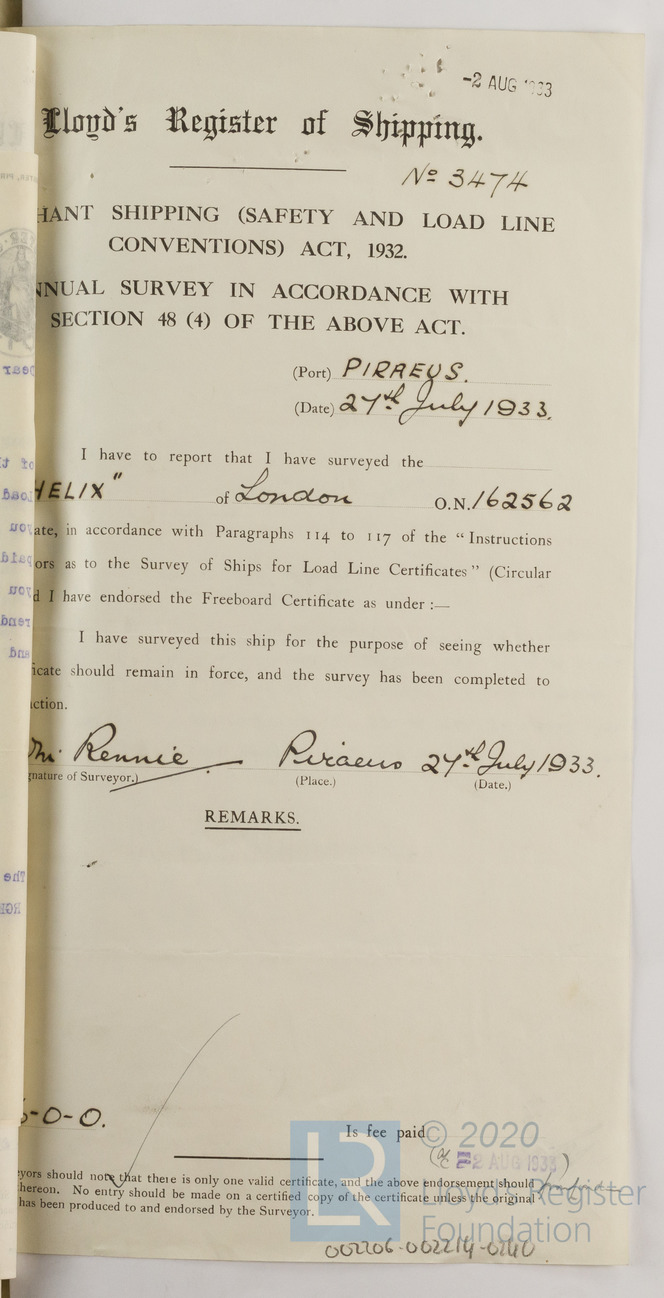 -2 AUG 1933
Lloyd's Register of Shipping.
No 3474
HANT SHIPPING (SAFETY AND LOAD LINE
CONVENTIONS) ACT, 1932.
NNUAL SURVEY IN ACCORDANCE WITH
SECTION 48 (4) OF THE ABOVE ACT.
(Port) PIRAEUS.
(Date) 27th July 1933.
I have to report that I have surveyed the
HELIX" of London O.N. 162562
ate, in accordance with Paragraphs 114 to 117 of the "Instructions
ors as to the Survey of Ships for Load Line Certificates" (Circular
d I have endorsed the Freeboard Certificate as under :—
I have surveyed this ship for the purpose of seeing whether
icate should remain in force, and the survey has been completed to
ction.
Rennie Piraeus 27th July 1933.
gnature of Surveyor.) (Place.) (Date.)
REMARKS.
-0-0.
Is fee paid
© 2020
2 AUG 1933
yors should note that there is only one valid certificate, and the above endorsement should
hereon. No entry should be made on a certified copy of the certificate unless the original
has been produced to and endorsed by the Surveyor.
LR
Lloyd's Register
Foundation
002206-002214-0240